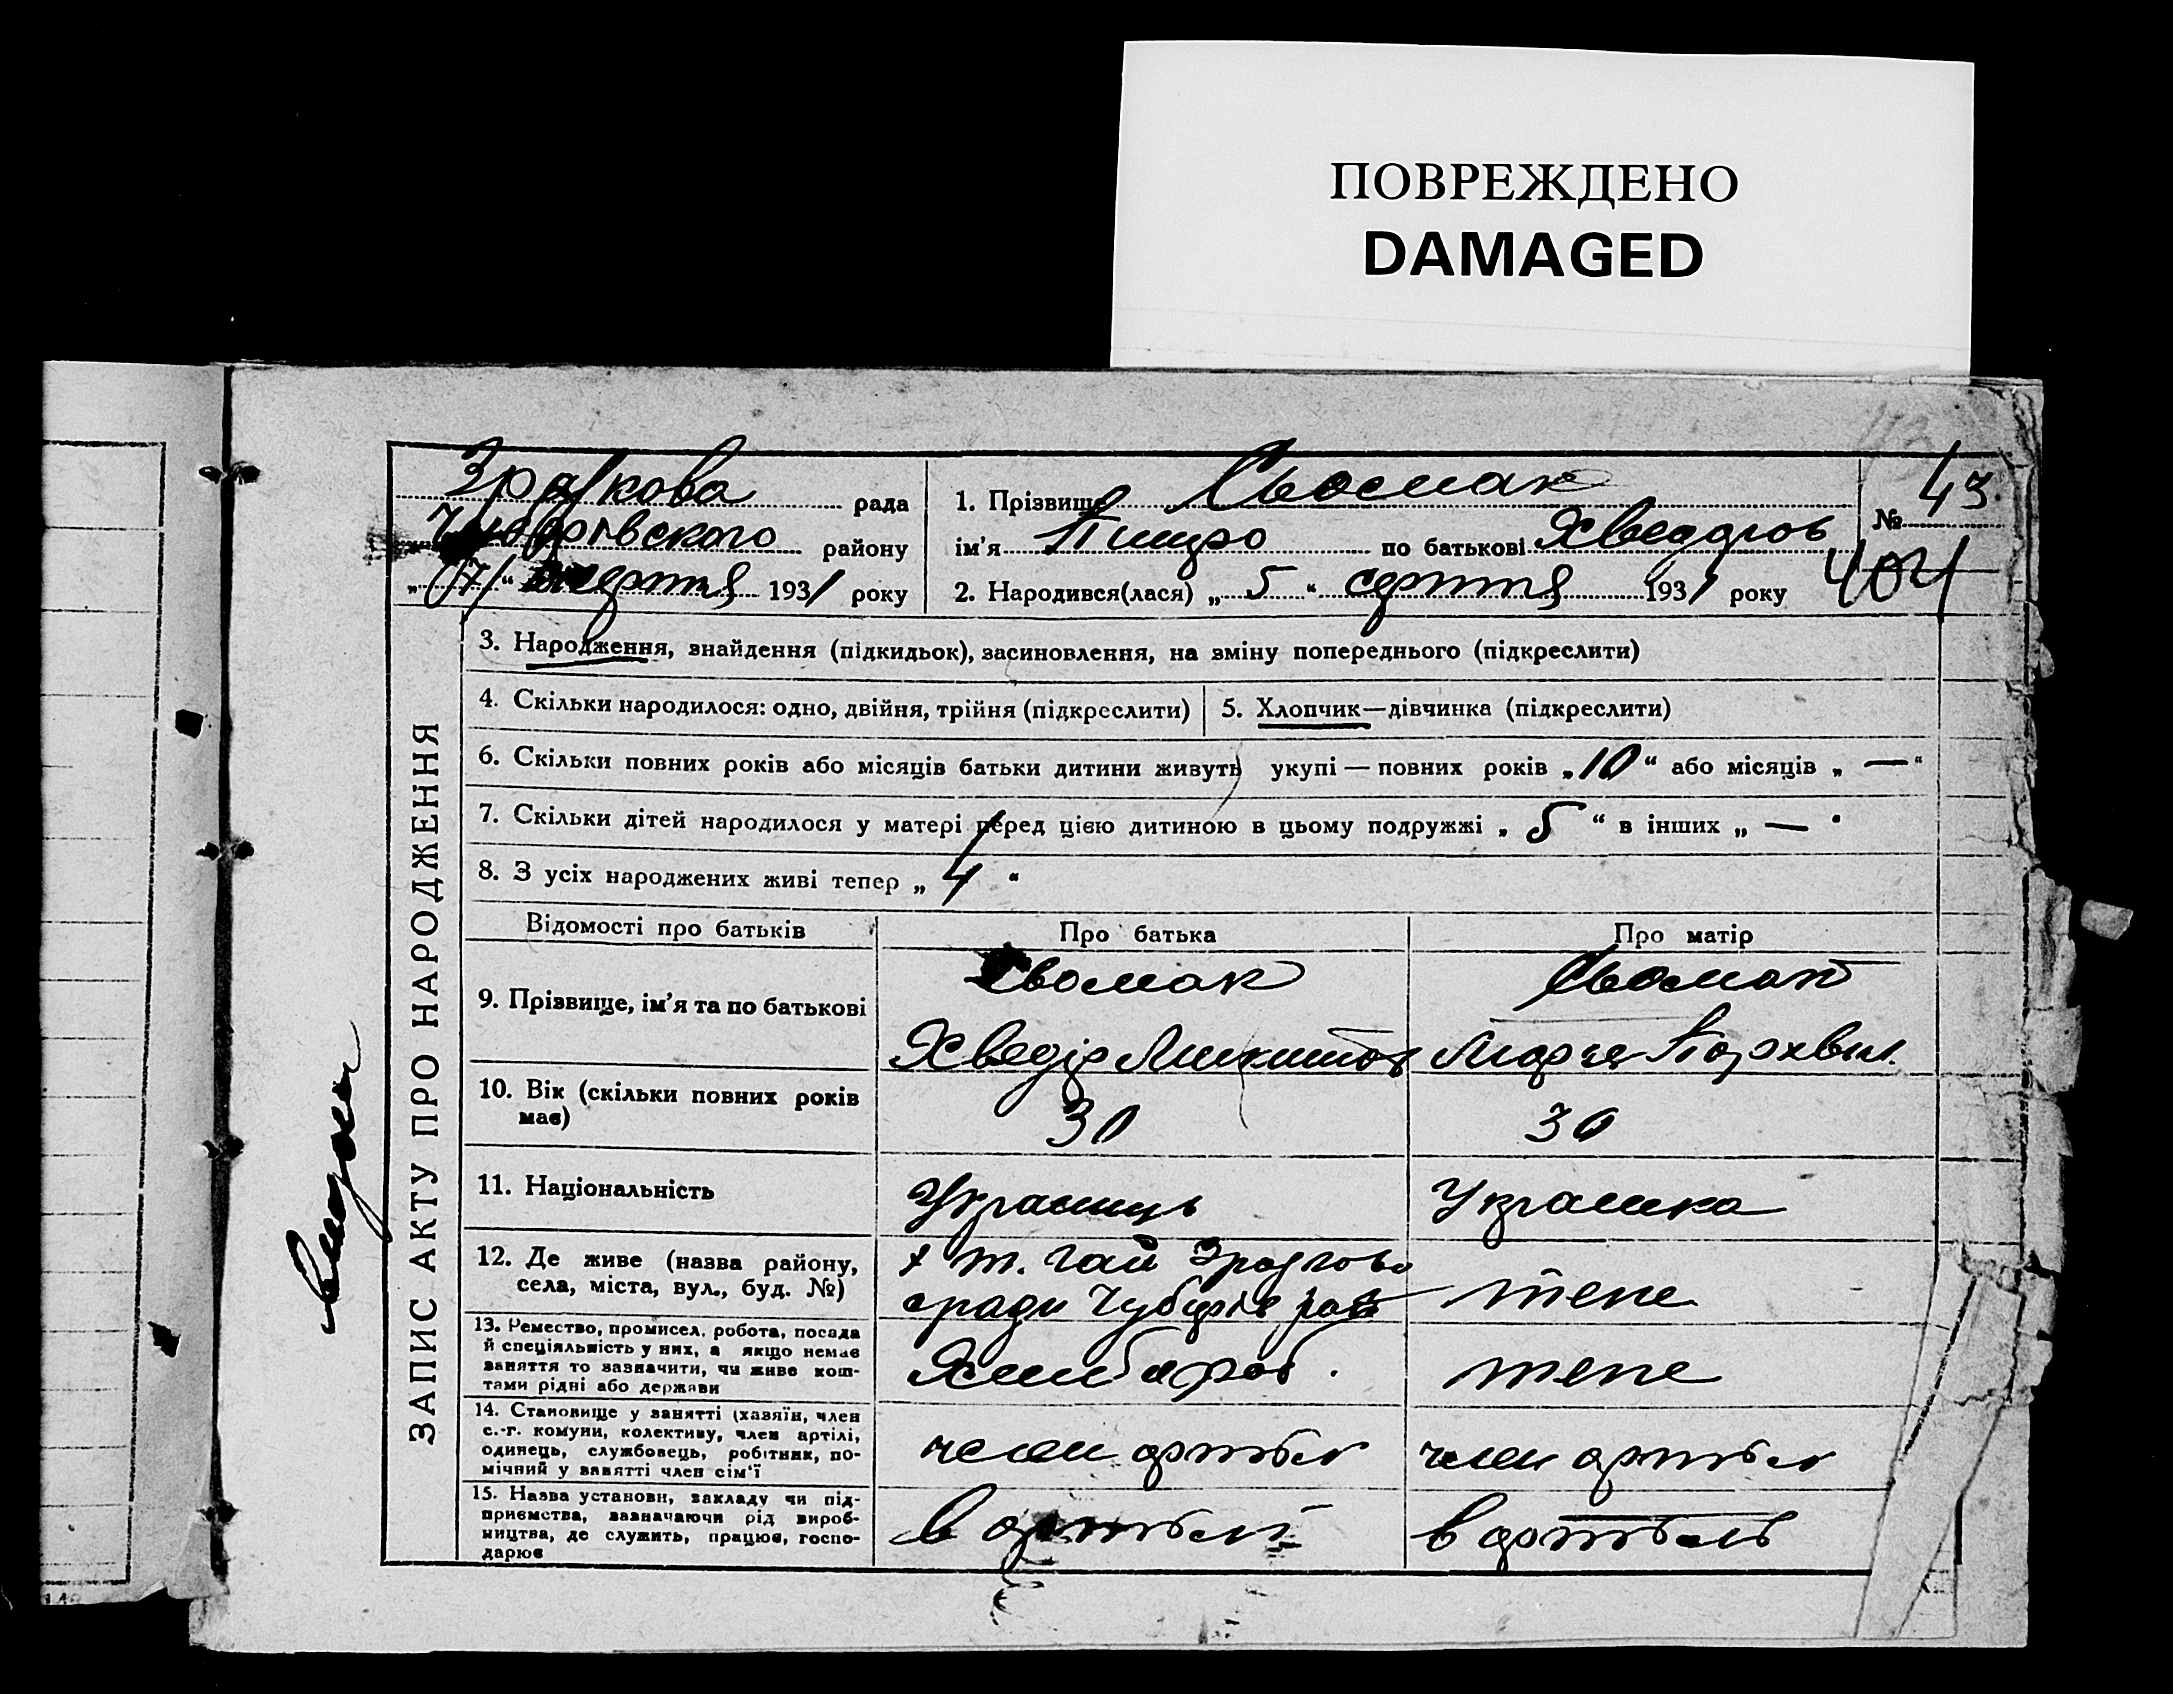 ПОВРЕЖДЕНО
DAMAGED
рада
району
„17“ серпня 1931 року
1. Прізвище Сьомак
ім'я Пицро по батькові Хведоров
№ 43
404
2. Народився(лася) „5“ серпня 1931 року
ЗАПИС АКТУ ПРО НАРОДЖЕННЯ
3. Народження, знайдення (підкидьок), засиновлення, на зміну попереднього (підкреслити)
4. Скільки народилося: одно, двійня, трійня (підкреслити)
5. Хлопчик—дівчинка (підкреслити)
6. Скільки повних років або місяців батьки дитини живуть укупі — повних років „10“ або місяців „—“
7. Скільки дітей народилося у матері перед цією дитиною в цьому подружжі „5“ в інших „—“
8. З усіх народжених живі тепер „4“
Відомості про батьків
Про батька
Про матір
9. Прізвище, ім'я та по батькові
Сьомак
Хведір Микитов
Сьомак
Марія Пархвил.
10. Вік (скільки повних років
має)
30
30
11. Національність
Украинць
Украинка
12. Де живе (назва району,
села, міста, вул., буд. №)
х т. Гай
ради
теже
13. Ремество, промисел, робота, посада
й спеціяльність у них, а якщо немає
заняття то зазначити, чи живе кош-
тами рідні або держави
Хлибороб.
теже
14. Становище у занятті (хазяїн, член
с.-г. комуни, колективу, член артілі,
одинець, службовець, робітник, по-
мічний у занятті член сім'ї
член артвіл
член артвіл
15. Назва установи, закладу чи під-
приємства, зазначаючи рід вироб-
ництва, де служить, працює, госпо-
дарює
в артілі
в артіль